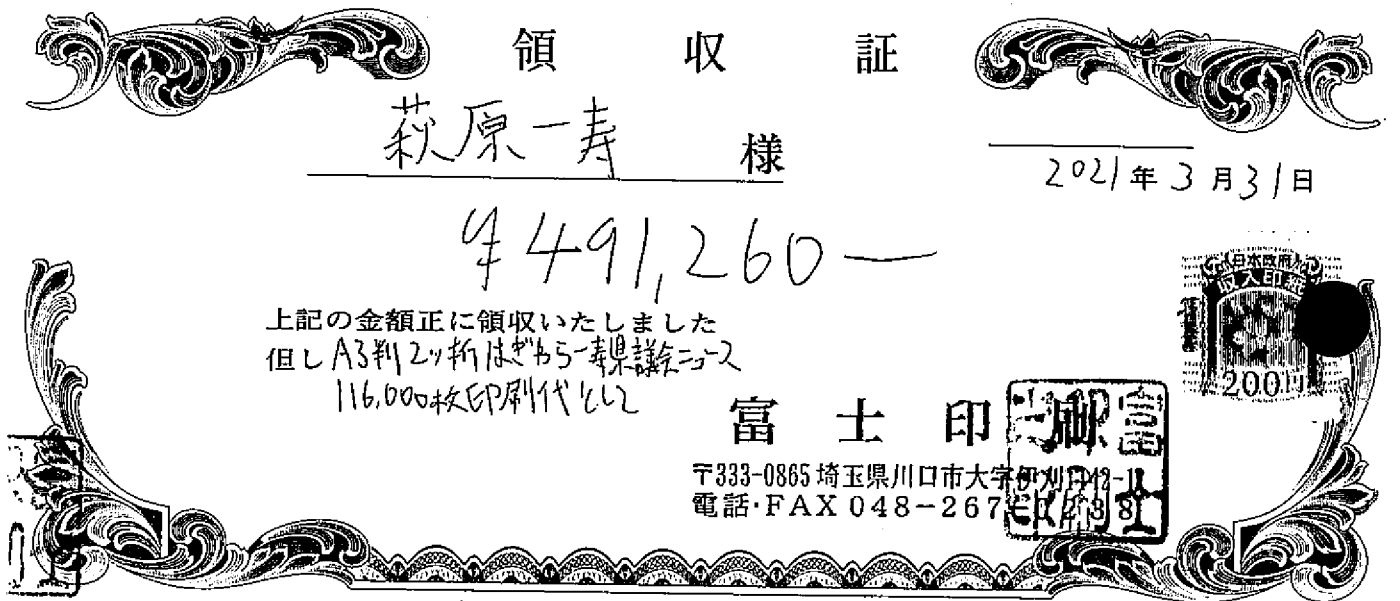 領収証
萩原一寿 様
2021年3月31日
¥491,260―
上記の金額正に領収いたしました
但しA3判2ッ折はぎわら一寿県議会ニュース
116,000枚印刷代として
日本政府
収入印紙
200円
富士印刷
〒333-0865 埼玉県川口市大字伊刈
電話・FAX 048-267